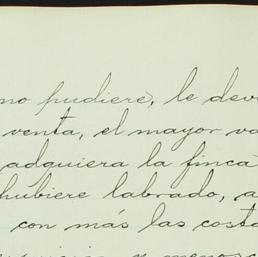 no pudiere, le dev
venta, el mayor va
adquiera la finca
hubiere labrado, a
con más las costa
y menos